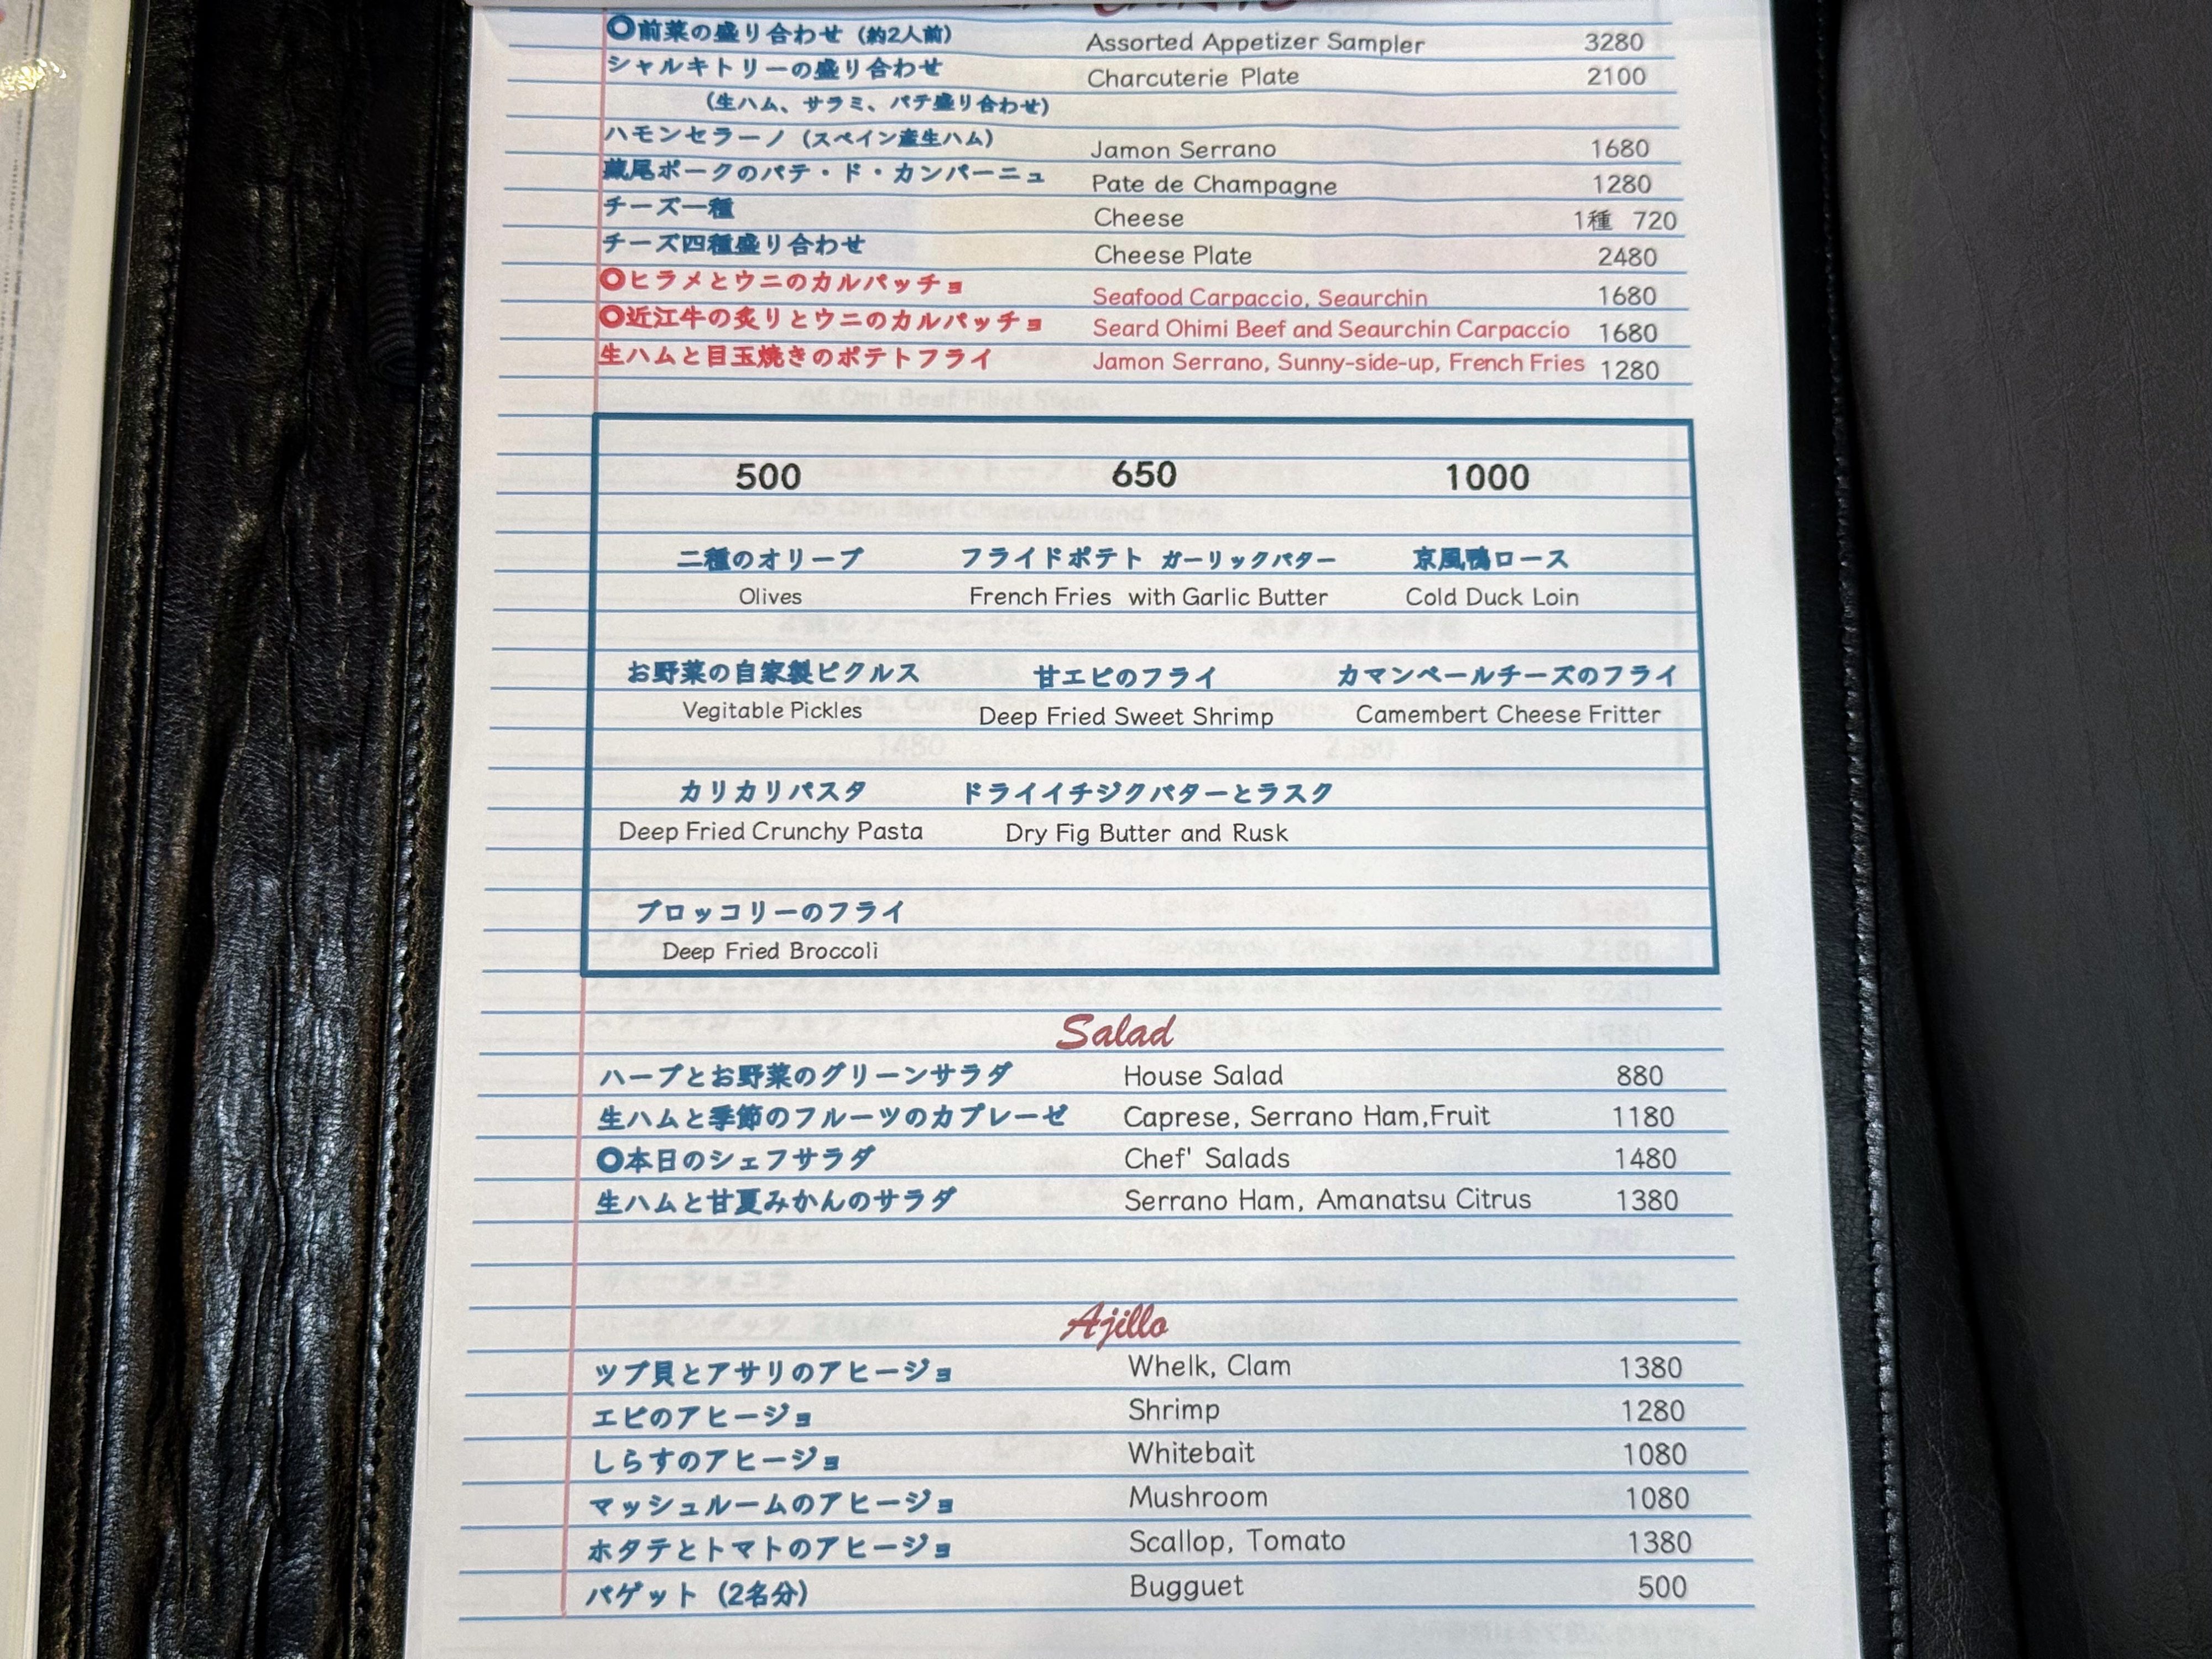 ○前菜の盛り合わせ（約2人前） Assorted Appetizer Sampler 3280
シャルキトリーの盛り合わせ Charcuterie Plate 2100
（生ハム、サラミ、パテ盛り合わせ）
ハモンセラーノ（スペイン産生ハム） Jamon Serrano 1680
蔵尾ポークのパテ・ド・カンパーニュ Pate de Champagne 1280
チーズ一種 Cheese 1種 720
チーズ四種盛り合わせ Cheese Plate 2480
○ヒラメとウニのカルパッチョ Seafood Carpaccio, Seaurchin 1680
○近江牛の炙りとウニのカルパッチョ Seard Ohimi Beef and Seaurchin Carpaccio 1680
生ハムと目玉焼きのポテトフライ Jamon Serrano, Sunny-side-up, French Fries 1280
500 650 1000
二種のオリーブ フライドポテト ガーリックバター 京風鴨ロース
Olives French Fries with Garlic Butter Cold Duck Loin
お野菜の自家製ピクルス 甘エビのフライ カマンベールチーズのフライ
Vegitable Pickles Deep Fried Sweet Shrimp Camembert Cheese Fritter
カリカリパスタ ドライイチジクバターとラスク
Deep Fried Crunchy Pasta Dry Fig Butter and Rusk
ブロッコリーのフライ
Deep Fried Broccoli
Salad
ハーブとお野菜のグリーンサラダ House Salad 880
生ハムと季節のフルーツのカプレーゼ Caprese, Serrano Ham,Fruit 1180
○本日のシェフサラダ Chef' Salads 1480
生ハムと甘夏みかんのサラダ Serrano Ham, Amanatsu Citrus 1380
Ajillo
ツブ貝とアサリのアヒージョ Whelk, Clam 1380
エビのアヒージョ Shrimp 1280
しらすのアヒージョ Whitebait 1080
マッシュルームのアヒージョ Mushroom 1080
ホタテとトマトのアヒージョ Scallop, Tomato 1380
バゲット（2名分） Bugguet 500